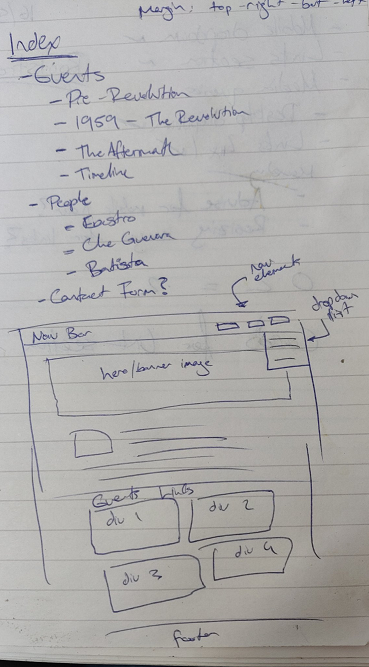 Margin: top-right-bot-left
Index
- Events
- Pre-Revolution
- 1959 - The Revolution
- The Aftermath
- Timeline
- People
- Castro
- Che Guevara
- Batista
- Contact Form?
nav elements
dropdown list
Nav Bar
hero/banner image
Events Links
div 1
div 2
div 3
div 4
footer